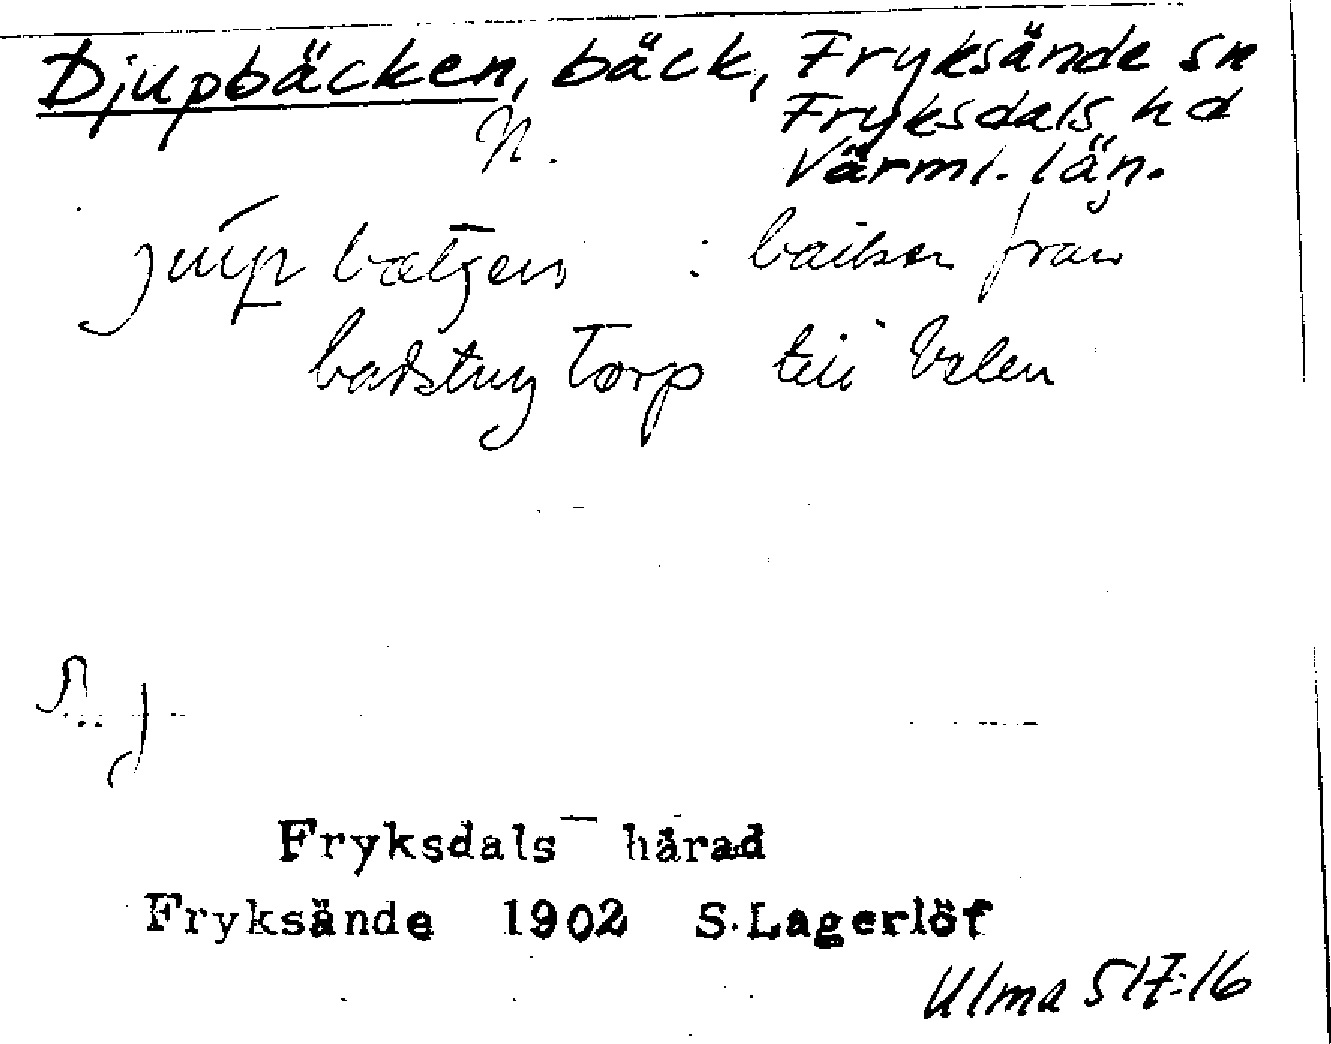 Djupbäcken, bäck, Fryksände sn
Fryksdals hd
N. Värml. län.
: bäcken från
badstug torp till
Fryksdals härad
Fryksände 1902 S.Lagerlöf
Ulma 517:16